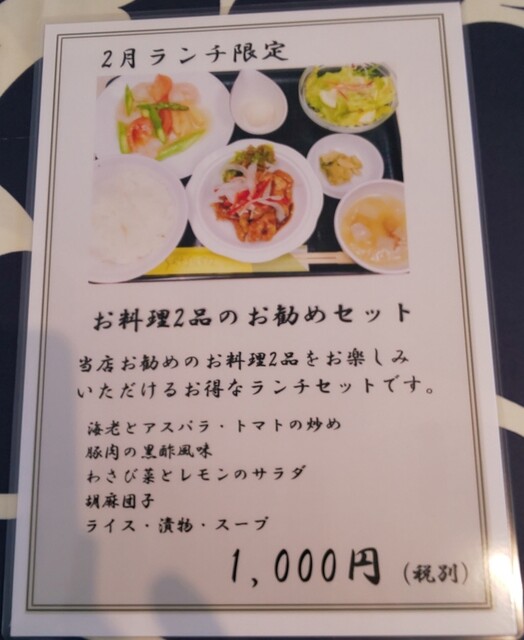 2月ランチ限定
お料理2品のお勧めセット
当店お勧めのお料理2品をお楽しみ
いただけるお得なランチセットです。
海老とアスパラ・トマトの炒め
豚肉の黒酢風味
わさび菜とレモンのサラダ
胡麻団子
ライス・漬物・スープ
1,000円 (税別)